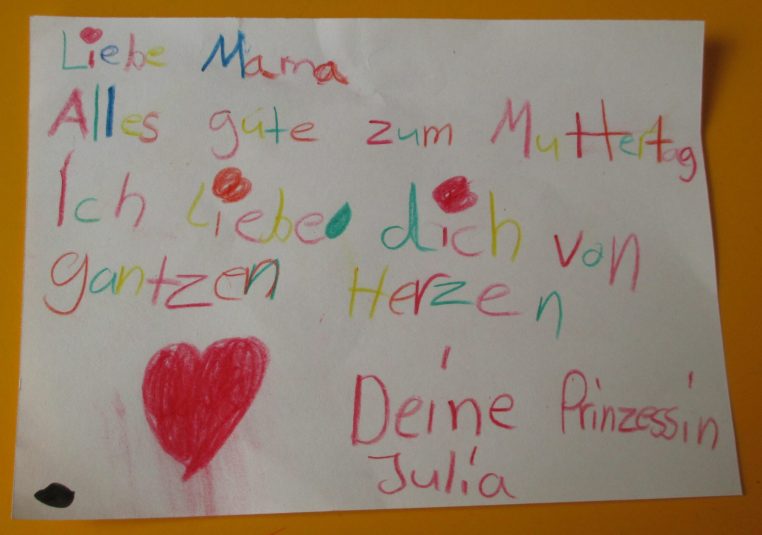 Liebe Mama
Alles gute zum Muttertag
Ich liebe dich von
gantzen Herzen
Deine Prinzessin
Julia